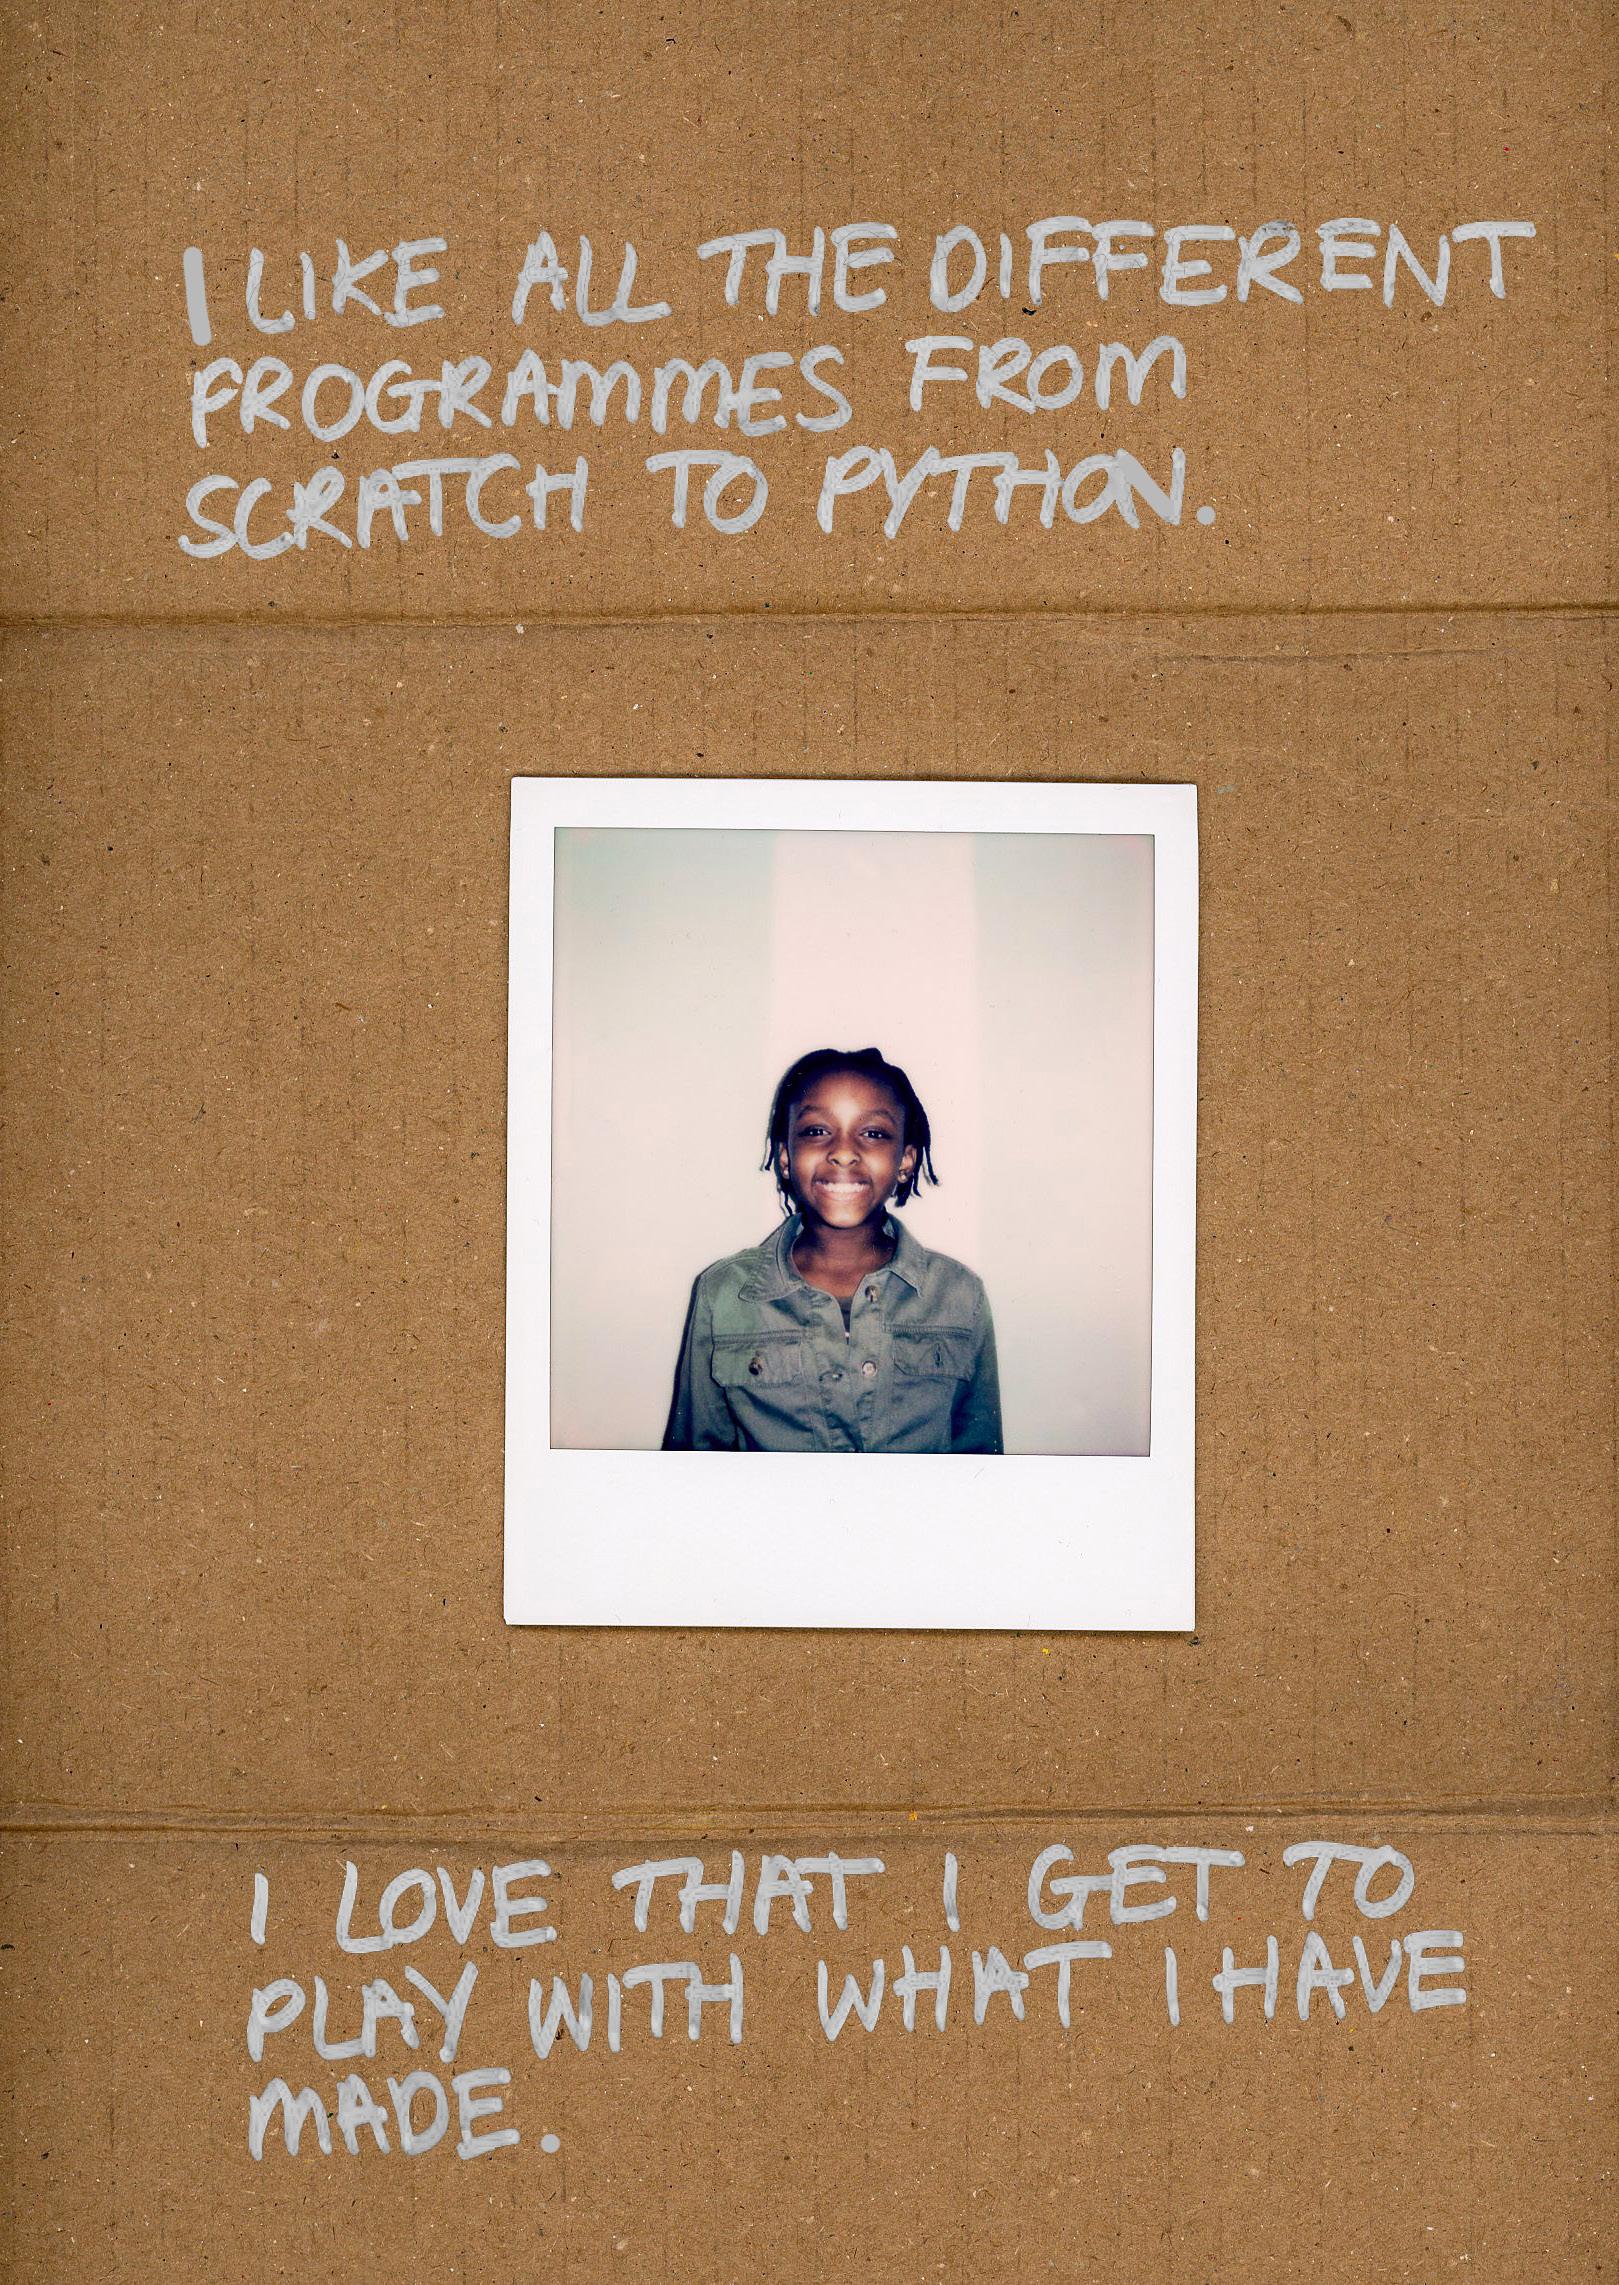 I LIKE ALL THE DIFFERENT
PROGRAMMES FROM
SCRATCH TO PYTHON.
I LOVE THAT I GET TO
PLAY WITH WHAT I HAVE
MADE.